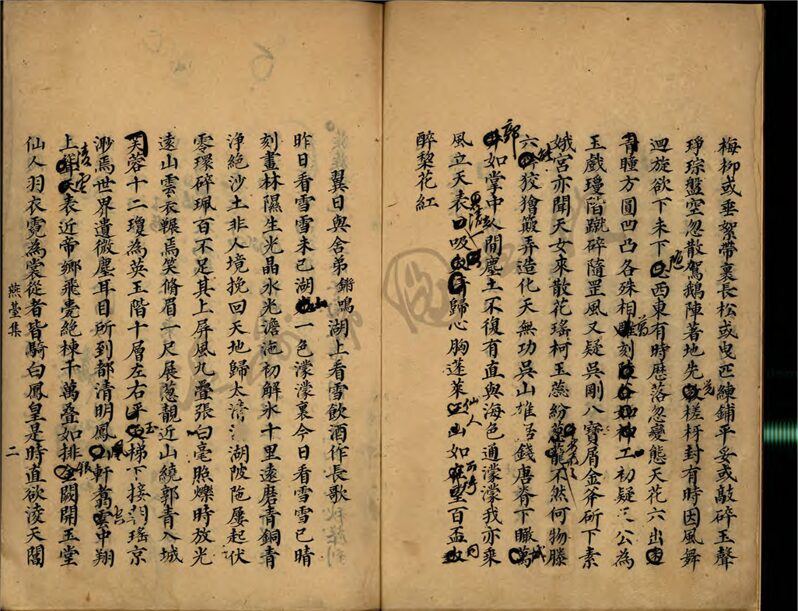 梅柳或垂絮帶裹長松或曳匹練鋪平妥或敲碎玉聲
琤琮盤空忽散駕鵝陣著地先封槎枒封有時因風舞
迴旋欲下未下西東有時歷落忽變態天花六出
瞳方圓凹凸各殊相刻神工初疑三公為
玉戲瓊階蹴碎隨罡風又疑吳剛八寶屑金斧斫下素
娥宮亦聞天女來散花瑤柯玉蕊紛龍不然何物滕
六狡獪簸弄造化天無功吳山雄錢唐脊下瞰萬
井如掌中人間塵土不復有直與海色通濛濛我亦乘
風立天表口吸歸心胸蓬萊仙人如可望百盃同
醉藜花紅
翼日與舍弟鏘鳴湖上看雪飲酒作長歌
昨日看雪雪未已湖山一色濛濛裏今日看雪雪已晴
刻畫林隰生光晶水光澹沲初解氷十里遠磨青銅青
淨絶沙土非人境挽回天地歸太清湖陂陁屢起伏
零環碎珮百不足其上屏風九疊張白毫照爍時放光
遠山雲衣輾焉笑脩眉一尺展蔥靚近山繞郭青入城
芙蓉十二瓊為英玉階十層左右平玉梯下接瑤京
渺焉世界遺微塵耳目所到都清明鳳軒翥雲中翔
上天表近帝鄉飛甍絶棟千萬疊如排闕開玉堂
仙人羽衣霓為裳從者皆騎白鳳皇是時直欲淩天閶
集
二